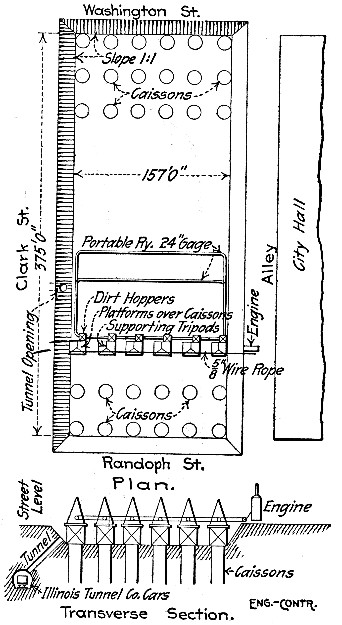 Washington St.
Slope 1:1
Caissons
157'0"
Clark St.
375'0"
Portable Ry. 24"Gage
Alley
City Hall
Engine
Dirt Hoppers
Platforms over Caissons
Supporting Tripods
Tunnel Opening
5/8" Wire Rope
Caissons
Randoph St.
Plan.
Street
Level
Engine
Tunnel
Caissons
Illinois Tunnel Co. Cars
Transverse Section.
ENG.-CONTR.